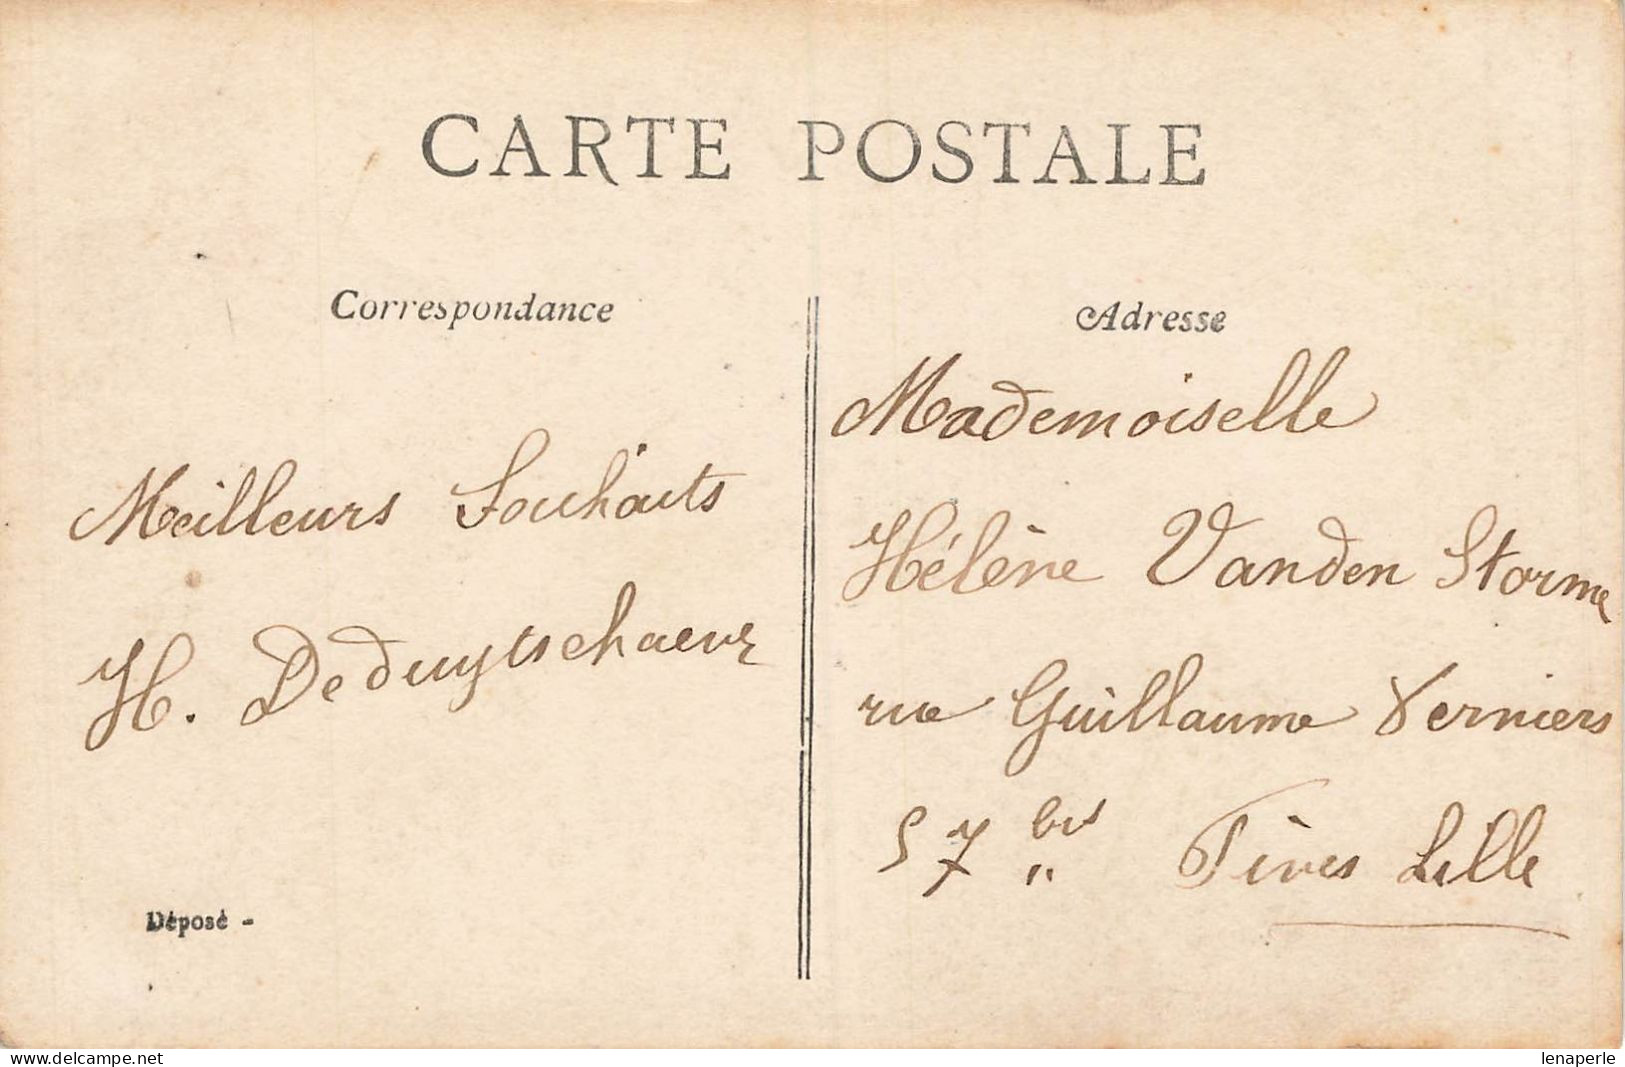 CARTE POSTALE
Correspondance
Meilleurs Souhaits
H. Deduytschaever
Déposé -
Adresse
Mademoiselle
Hélène Vanden Storme
rue Guillaume Verniers
57 bis Fives Lille
www.delcampe.net
lenaperle